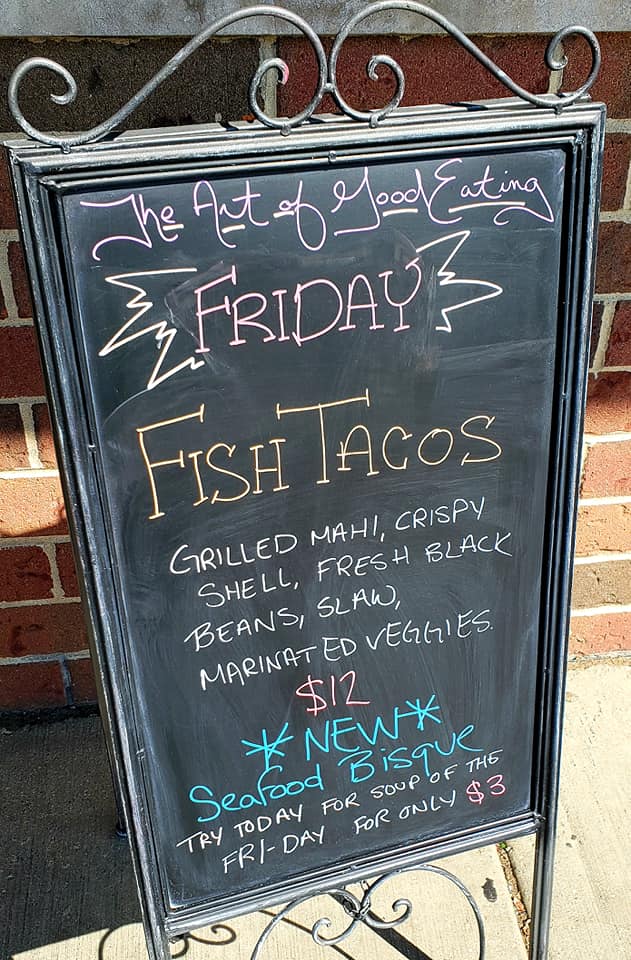 The Art of Good Eating
FRIDAY
FISH TACOS
GRILLED MAHI, CRISPY
SHELL, FRESH BLACK
BEANS, SLAW,
MARINATED VEGGIES.
$12
*NEW*
Seafood Bisque
TRY TODAY FOR SOUP OF THE
FRI-DAY FOR ONLY $3